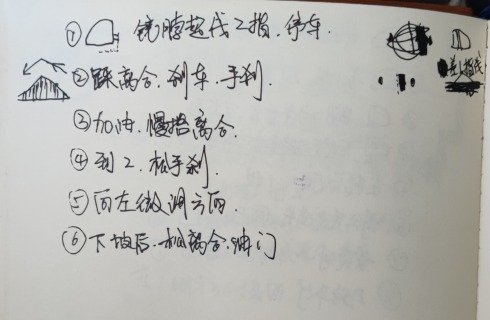 ① 镜脖起伐2指.停车.
② 踩离合.刹车.手刹.
差2指线
③ 加油.慢抬离合.
④ 到2.松手刹.
⑤ 向左微调方向.
⑥ 下坡后.松离合.油门